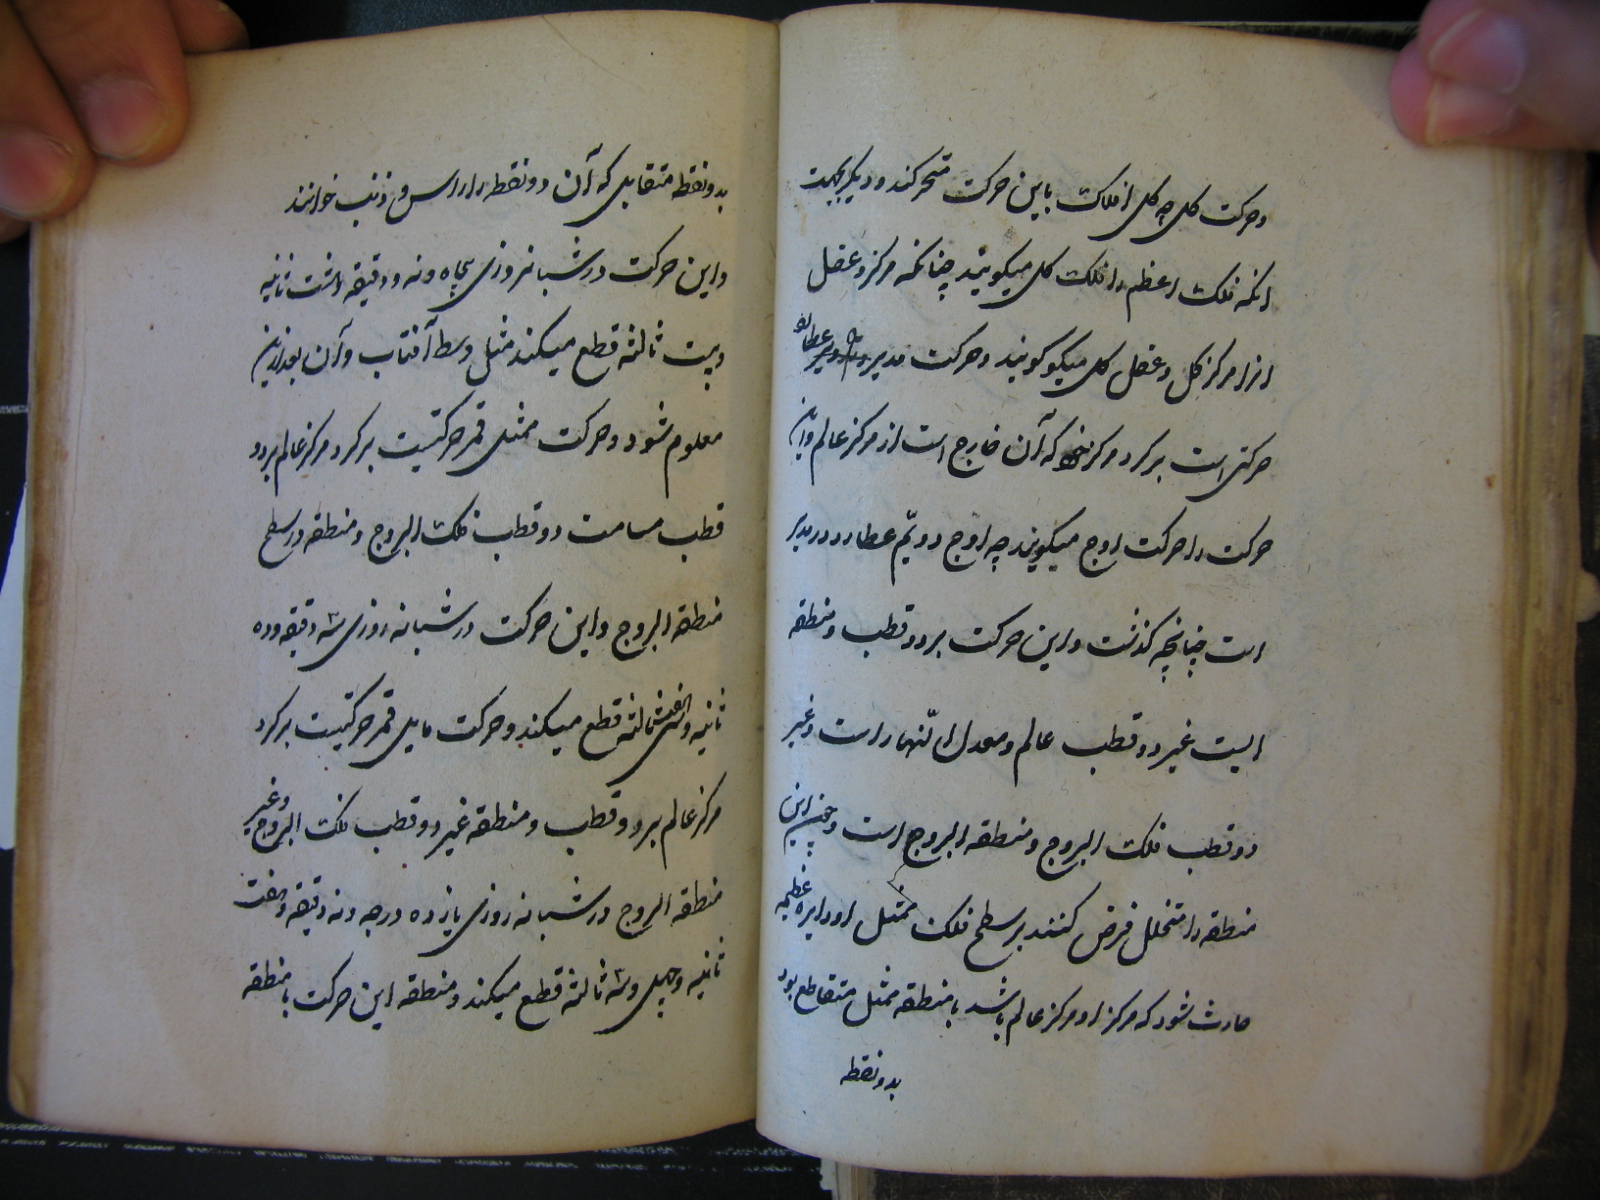 و حرکت کل چه کل افلاک باین حرکت متحرکند و دیگر بجهت
انکه فلک اعظم را فلک کل میکویند چنانکه مرکز و عقل
انرا مرکز کل و عقل کل میکوکویند و حرکت مدیر عطارد
حرکتی است بر کرد مرکزی که آن خارج است از مرکز عالم و این
حرکت را حرکت اوج میکویند چه اوج دویّم عطارد در مدیر
است چنانچه کذشت و این حرکت بر دو قطب و منطقه
ایست غیر دو قطب عالم و معدل النّهار است و غیر
دو قطب فلک البروج و منطقه البروج است و چون این
منطقه را متخلل فرض کنند بر سطح فلک ممثل او دایره عظیمه
حادث شود که مرکز او مرکز عالم باشد با منطقه ممثل متقاطع بود
بدو نقطه
بدو نقطه متقابل که آن دو نقطه را راس و ذنب خوانند
و این حرکت در شبانروزی پنجاه و نه دقیقه و هشت ثانیه
و بیست ثالثه قطع میکند مثل وسط آفتاب و آن بعد ازین
معلوم شود و حرکت ممثل قمر حرکتیست بر کرد مرکز عالم بر دو
قطب مسامت دو قطب فلک البروج و منطقه در سطح
منطقه البروج و این حرکت در شبانه روزی سه دقیقه و ده
ثانیه و ثالثه قطع میکند و حرکت مایل قمر حرکتیست بر کرد
مرکز عالم بر دو قطب و منطقه غیر دو قطب فلک البروج و غیر
منطقه البروج در شبانه روزی یازده درجه و نه دقیقه و هفت
ثانیه و چهل و سه ثالثه قطع میکند و منطقه این حرکت با منطقه